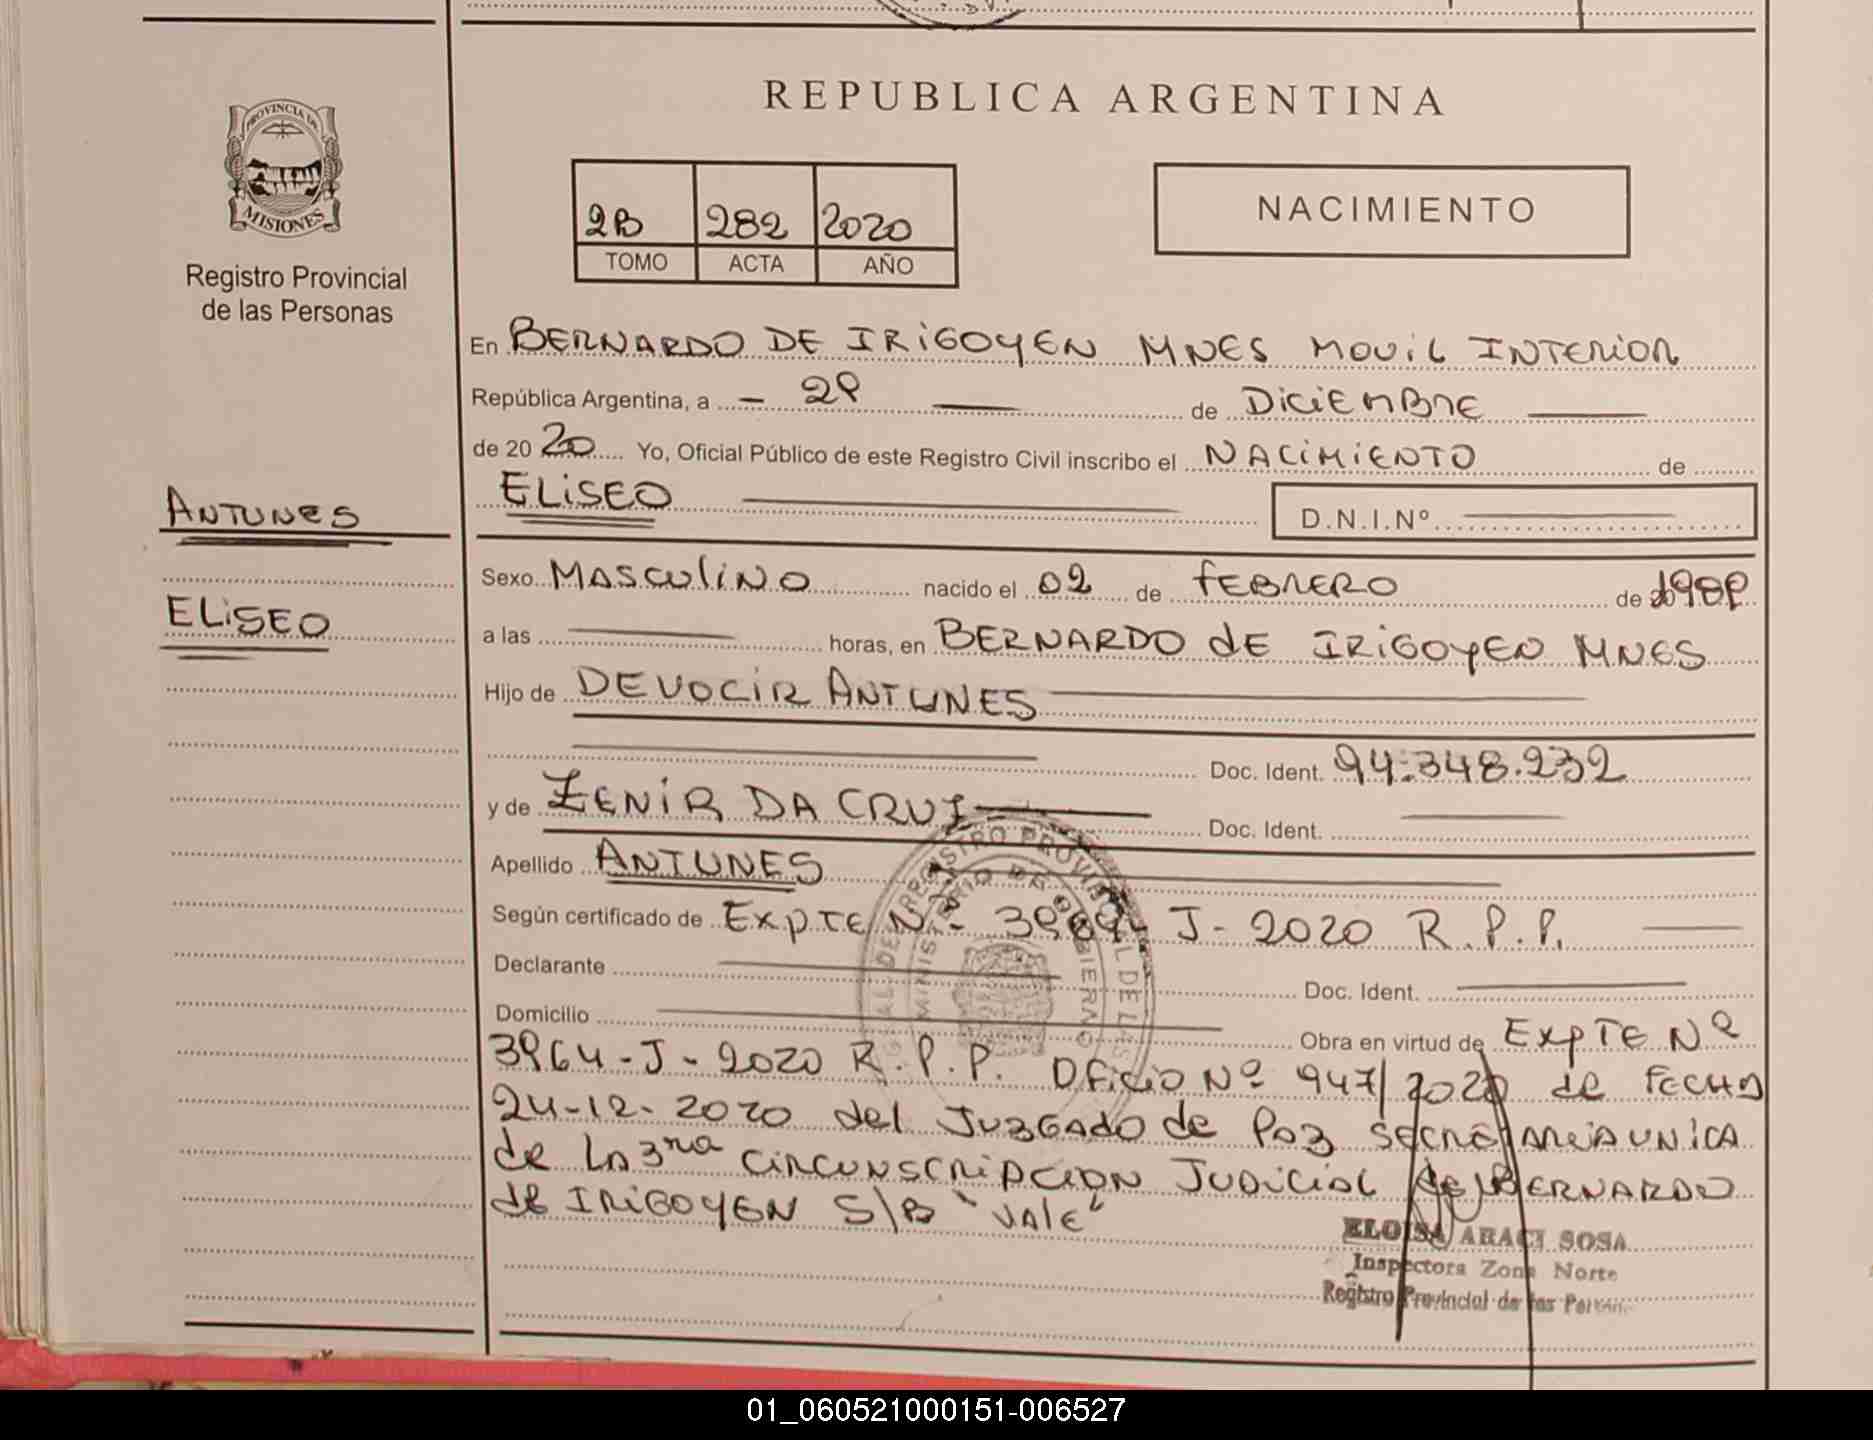 REPUBLICA ARGENTINA
PROVINCIA DE
MISIONES
Registro Provincial
de las Personas
2B 282 2020
TOMO ACTA AÑO
NACIMIENTO
En BERNARDO DE IRIGOYEN MNES MOVIL INTERIOR
República Argentina, a - 29 — de DICIEMBRE —
de 20 20 Yo, Oficial Público de este Registro Civil inscribo el NACIMIENTO de
ELISEO — D.N.I.Nº —
ANTUNES
ELISEO
Sexo MASCULINO nacido el 02 de FEBRERO de 1989
a las — horas, en BERNARDO dE IRIGOYEN MNES
Hijo de DEVOCIR ANTUNES —
— Doc. Ident. 94.348.232
y de ZENIR DA CRUZ — Doc. Ident. —
Apellido ANTUNES —
Según certificado de EXPTE Nº 3964 J - 2020 R.P.P. —
Declarante — Doc. Ident. —
Domicilio — Obra en virtud de EXPTE Nº
3964 - J - 2020 R.P.P. OFICIO Nº 947/2020 de FECHA
24-12-2020 del JUZGADO de PAZ SECRETARIA UNICA
de LA 3ra CIRCUNSCRIPCION JUDICIAL de BERNARDO
de IRIGOYEN S/B "VALE"
ELOISA ARACI SOSA
Inspectora Zona Norte
Registro Provincial de las Person
01_060521000151-006527